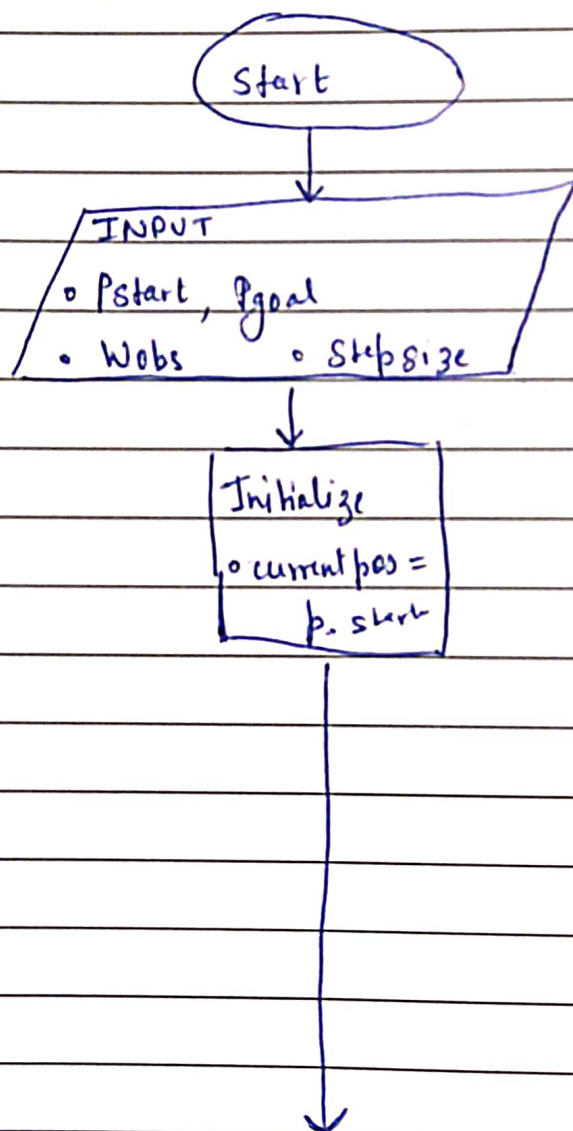 Start
INPUT
• Pstart, Pgoal
• Wobs • Stepsize
Initialize
• currentpos =
p. start